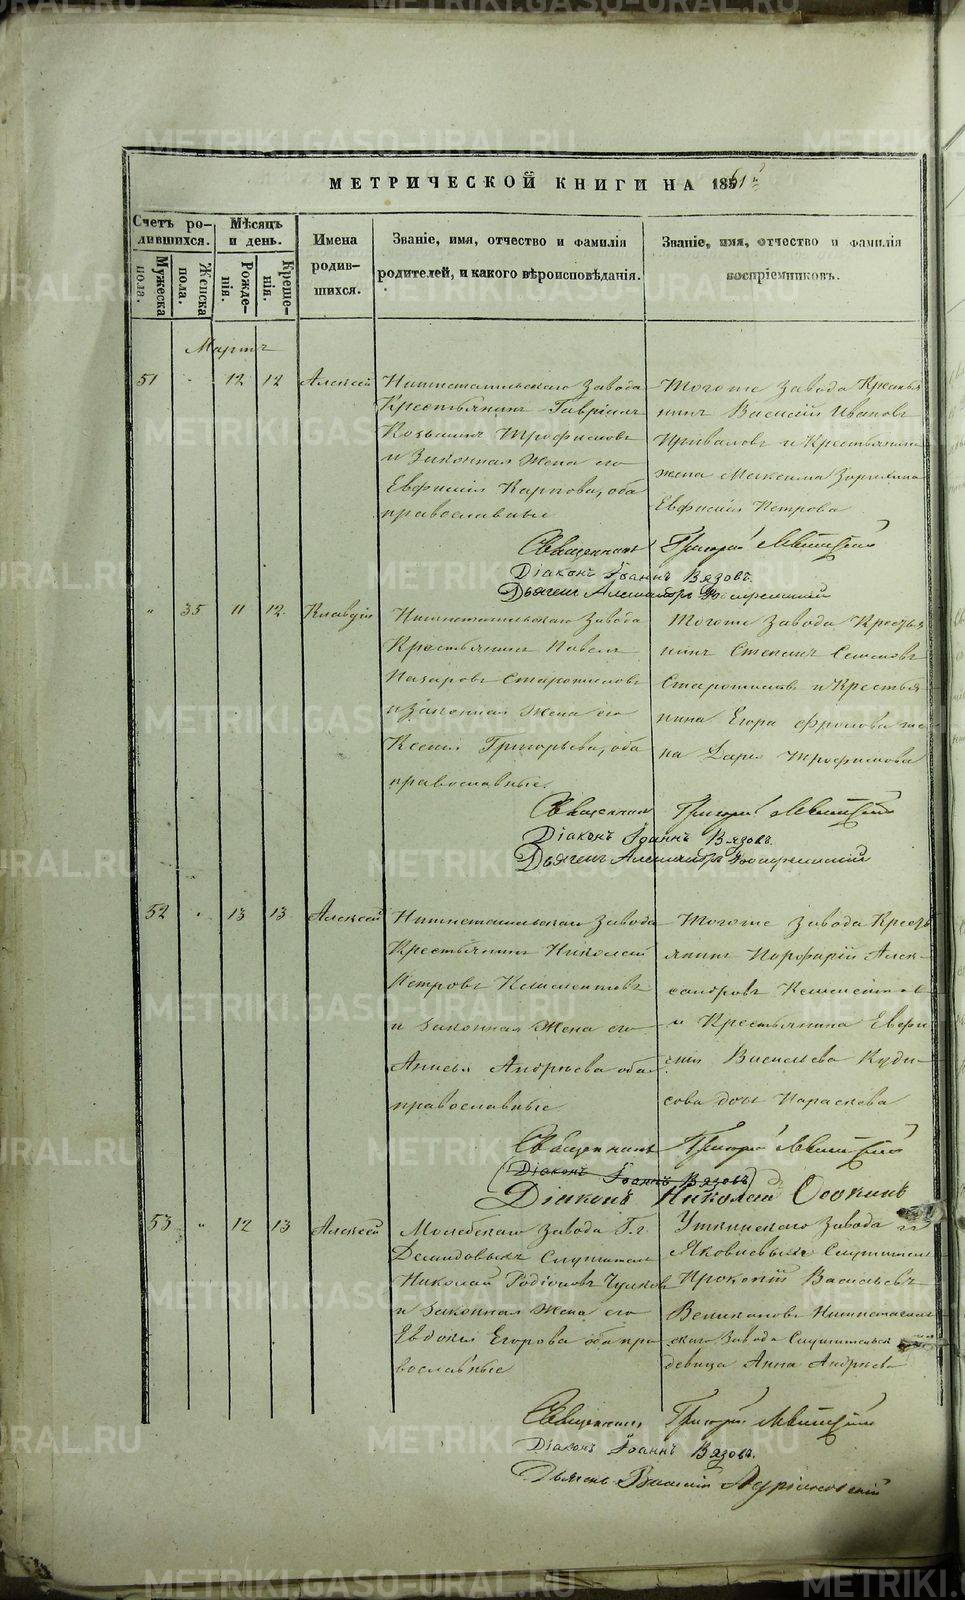 METRIKI.GASO-URAL.RU
МЕТРИЧЕСКОЙ КНИГИ НА 1861 г.
Счетъ родившихся.
Мужеска пола.
Женска пола.
Мѣсяцъ и день.
Рожденія.
Крещенія.
Имена родившихся.
Званіе, имя, отчество и фамилія родителей, и какого вѣроисповѣданія.
Званіе, имя, отчество и фамилія воспріемниковъ.
Мартъ
51 12 12 Алексей
Нижнетагильскаго Завода
Крестьянинъ Гавріилъ
Козьминъ Трофимовъ
и Законная Жена его
Евфимія Карпова, оба
православные
Тогоже Завода Крестья
нинъ Василій Ивановъ
Приваловъ и Крестьянина
жена Максима
Евфимія Петрова
Священникъ Григорій Левитскій
Діаконъ Іоаннъ Вязовъ.
Дьячекъ Александръ
" 35 11 12 Клавдія
Нижнетагильскаго Завода
Крестьянинъ Павелъ
Назаровъ Старожиловъ
и законная Жена его
Ксенія Григорьева, оба
православные.
Тогоже Завода Крестья
нинъ Степанъ Семеновъ
Старожиловъ и Крестья
нина Егора Фролова же
на Дарья Трофимова
Священникъ Григорій Левитскій
Діаконъ Іоаннъ Вязовъ.
Дьячекъ Александръ
52 13 13 Алексей
Нижнетагильскаго Завода
Крестьянинъ Николай
Петровъ Клементовъ
и законная Жена его
Анисья Андреева оба
православные
Тогоже Завода Кресть
янинъ Порфирій Алек
сандровъ Клементов
и Крестьянина Евфи
мія Васильева Куди
сова дочь Параскева
Священникъ Григорій Левитскій
Діаконъ Іоаннъ Вязовъ
Діаконъ Николай Осокинъ
53 " 12 13 Алексей
Завода Гг.
Демидовыхъ Служитель
Николай Родіоновъ Чумков
и законная Жена его
Евдокія Егорова оба пра
вославные
Уткинскаго Завода гг
Яковлевыхъ Служитель
Прокопій Васильевъ
Великановъ Нижнетагиль
скаго Завода Служительск
девица Анна Андреева
Священникъ Григорій Левитскій
Діаконъ Іоаннъ Вязовъ.
Дьячекъ Василій